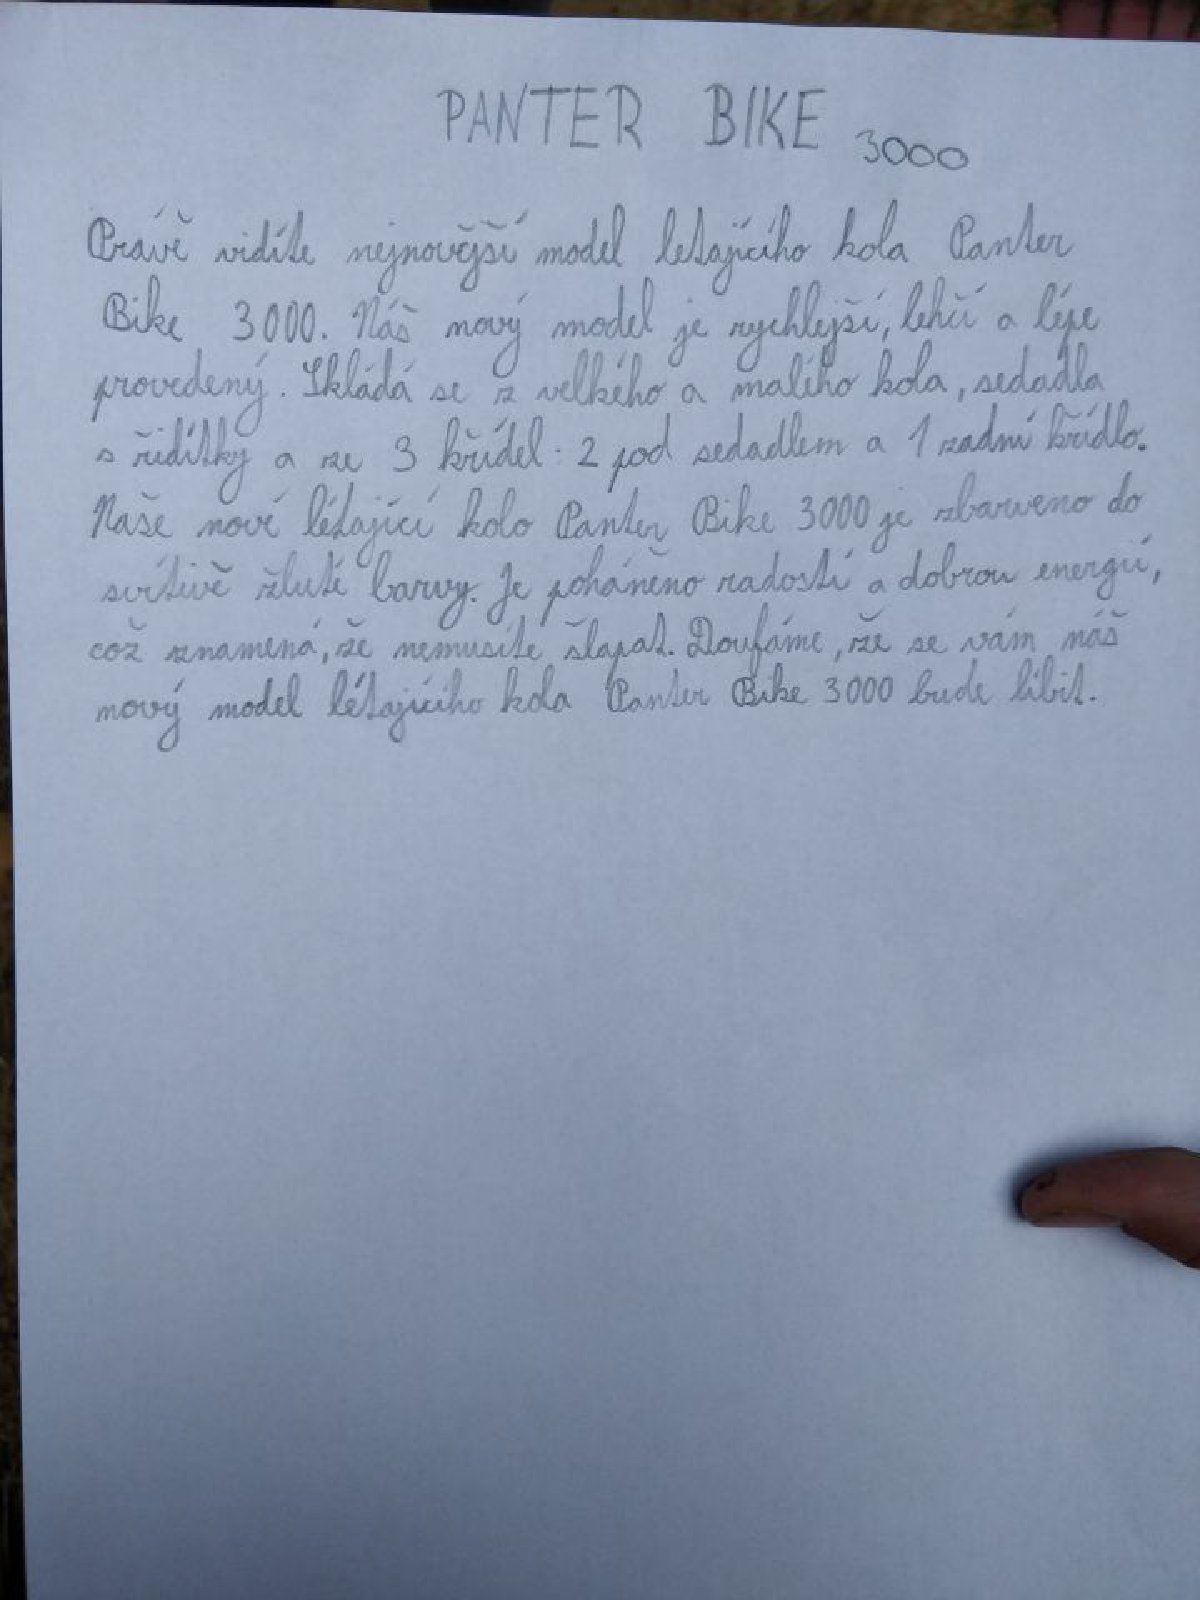 PANTER BIKE 3000
Právě vidíte nejnovější model letajícího kola Panter
Bike 3000. Náš nový model je rychlejší, lehčí a lépe
provedený. Skládá se z velkého a malého kola, sedadla
s řidítky a ze 3 křídel: 2 pod sedadlem a 1 zadní křídlo.
Naše nové létající kolo Panter Bike 3000 je zbarveno do
svítivě žluté barvy. Je poháněno radostí a dobrou energií,
což znamená, že nemusíte šlapat. Doufáme, že se vám náš
nový model létajícího kola Panter Bike 3000 bude líbit.